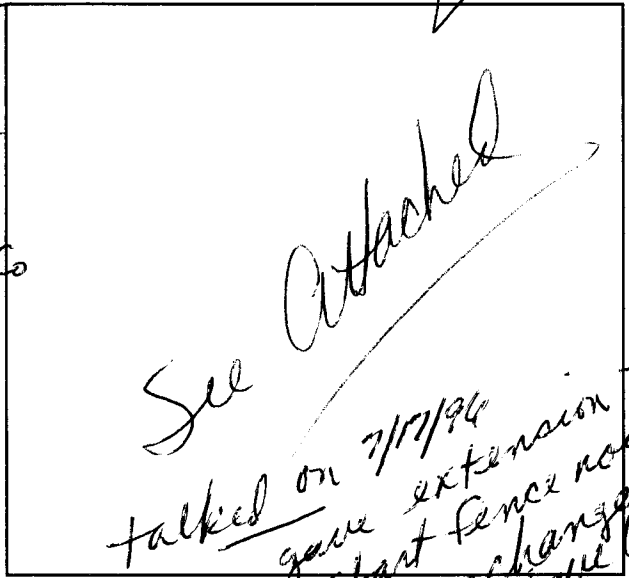 See Attached
talked on 7/17/96
gave extension
fence
change